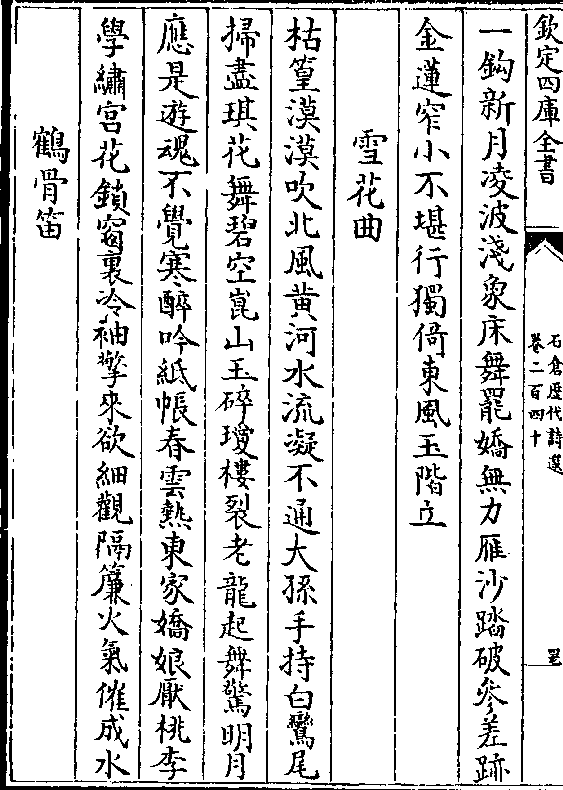 欽定四庫全書
石倉歷代詩選
卷二百四十
一鈎新月凌波淺象床舞罷嬌無力雁沙踏破參差跡
金蓮窄小不堪行獨倚東風玉階立
雪花曲
枯篁漠漠吹北風黄河水流凝不通大孫手持白鸞尾
掃盡琪花舞碧空崑山玉碎瓊樓裂老龍起舞驚明月
應是遊魂不覺寒醉吟紙帳春雲熱東家嬌娘厭桃李
學繡宫花鎖窗裏冷袖擎來欲細觀隔簾火氣催成水
鶴骨笛